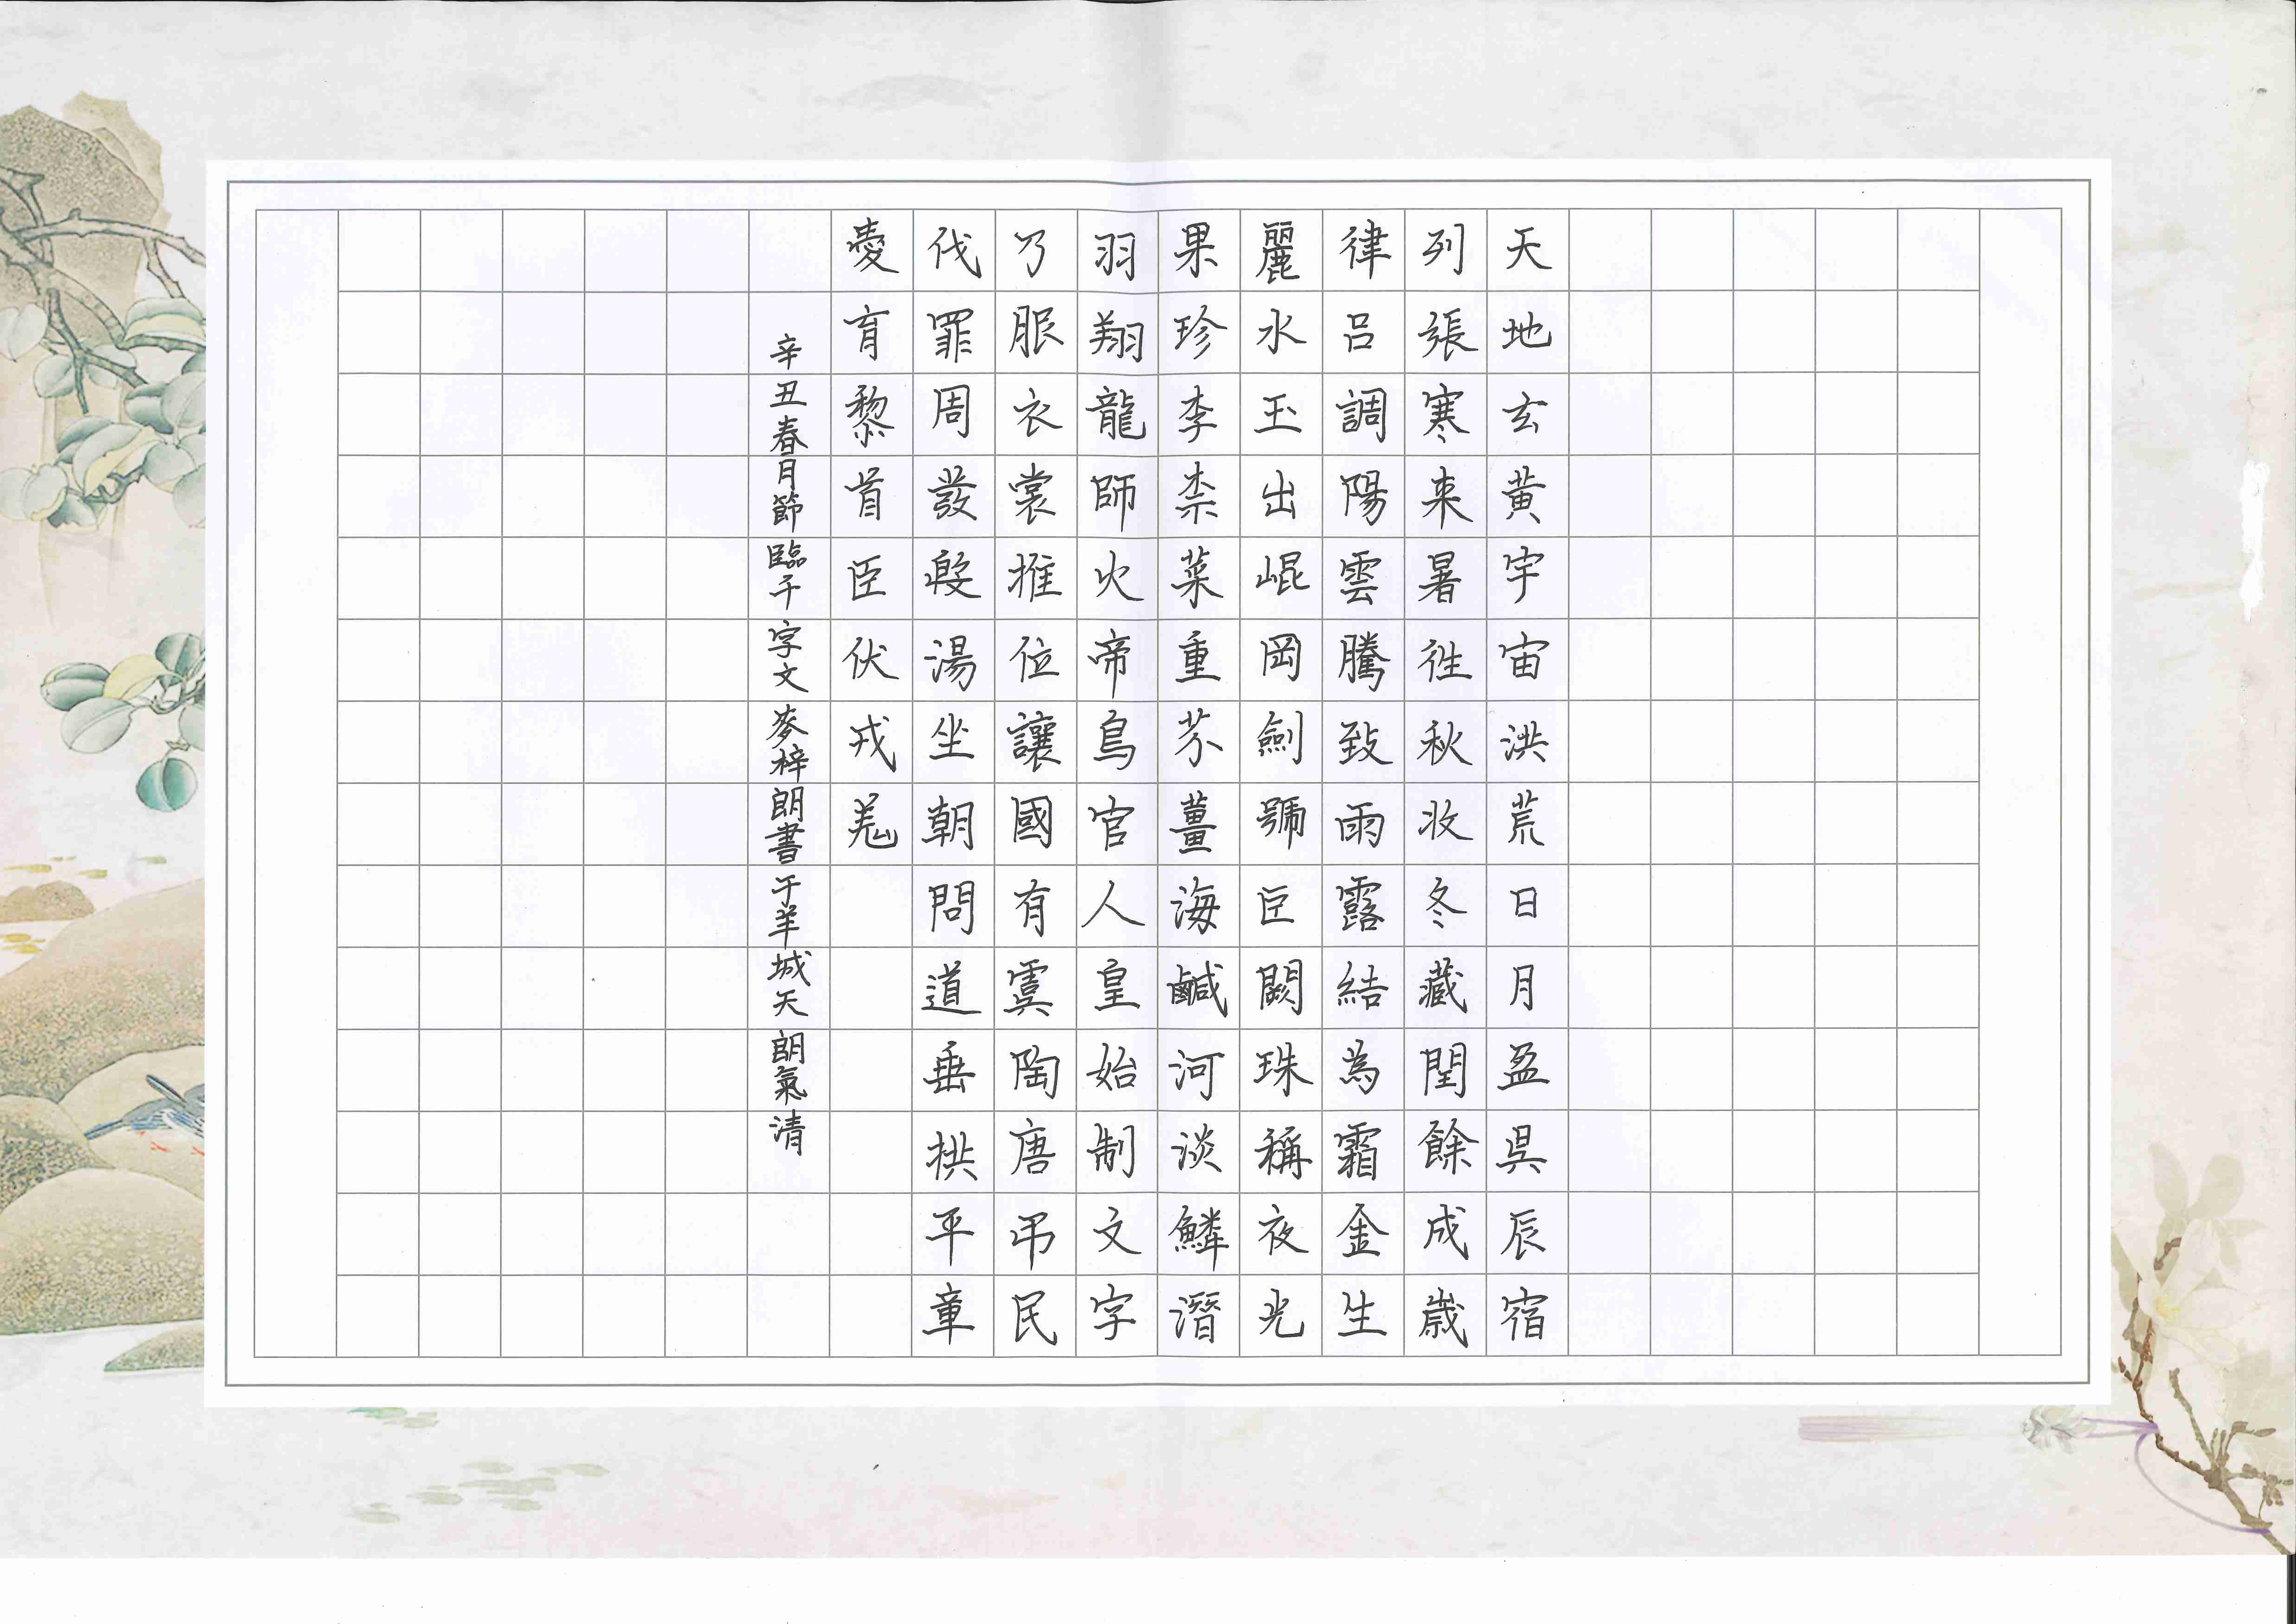 天地玄黄宇宙洪荒日月盈昃辰宿
列張寒来暑往秋收冬藏閏餘成歲
律吕調陽雲騰致雨露結為霜金生
麗水玉出崐岡劍號巨闕珠稱夜光
果珍李柰菜重芥薑海鹹河淡鱗潛
羽翔龍師火帝鳥官人皇始制文字
乃服衣裳推位讓國有虞陶唐弔民
伐罪周發殷湯坐朝問道垂拱平章
愛育黎首臣伏戎羌
辛丑春月節臨千字文麥梓朗書于羊城天朗氣清